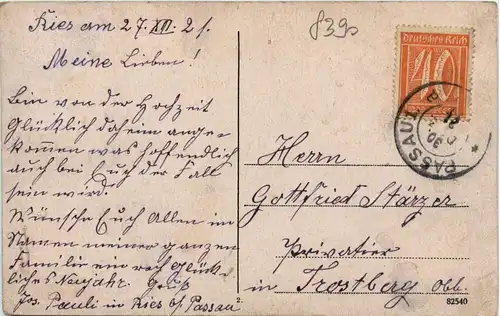 Ries am 27. XII. 21.
Meine Lieben!
Bin von der Hochzeit
Glücklich daheim ange-
kommen was hoffendlich
auch bei Euch der Fall
sein wird.
Wünsche Euch Allen im
Namen meiner ganzen
Familie ein rech glück-
liches Neujahr. Gruß
Jos. Pauli in Ries b/Passau
839
Deutsches Reich
40
PASSAU 2
Herrn
Gottfried Stärzer
Privatier
in Trostberg Obb.
82540